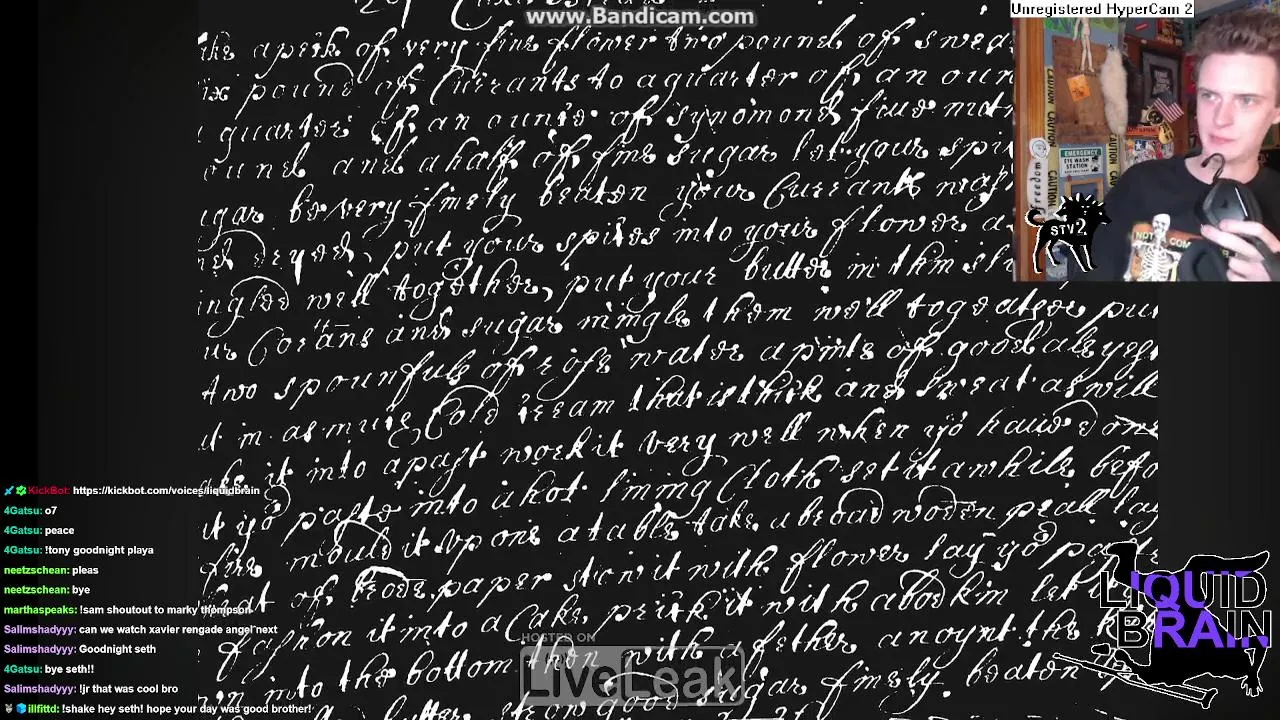 www.Bandicam.com
Unregistered HyperCam 2
a peck of very fine flower two pound of
pound of Currants to a quarter of an oun
quarter of an ounce of synomond five nut
ound and a half of fine sugar let your spi
gar be very finely beaten your Currants wash
dryed, put your spices into your flower a
mingled well together, put your butter in thin sli
ur Corans and sugar mingle them well togeather pu
two spounfuls of rose water a pinte of good ale yest
it in as much Cold cream that is thick and sweat as will
it into a past work it very well when yo have don
it yo paste into a hot linning Cloth set it a while befo
fire mould it upon a table take a broad woden peall lay
of broun paper strow it with flower lay yo paste
fashon it into a Cake, prick it with a bodkin let
into the bottom then with a fether anoynt the
good sugar finely beaten
EMERGENCY
EYE WASH
STATION
CAUTION
Freedom
STV2
KickBot: https://kickbot.com/voices/liquidbrain
4Gatsu: o7
4Gatsu: peace
4Gatsu: !tony goodnight playa
neetzschean: pleas
neetzschean: bye
marthaspeaks: !sam shoutout to marky thompson
Salimshadyyy: can we watch xavier rengade angel next
Salimshadyyy: Goodnight seth
4Gatsu: bye seth!!
Salimshadyyy: !jr that was cool bro
illfittd: !shake hey seth! hope your day was good brother!
HOSTED ON
LiveLeak
LIQUID
BRAIN